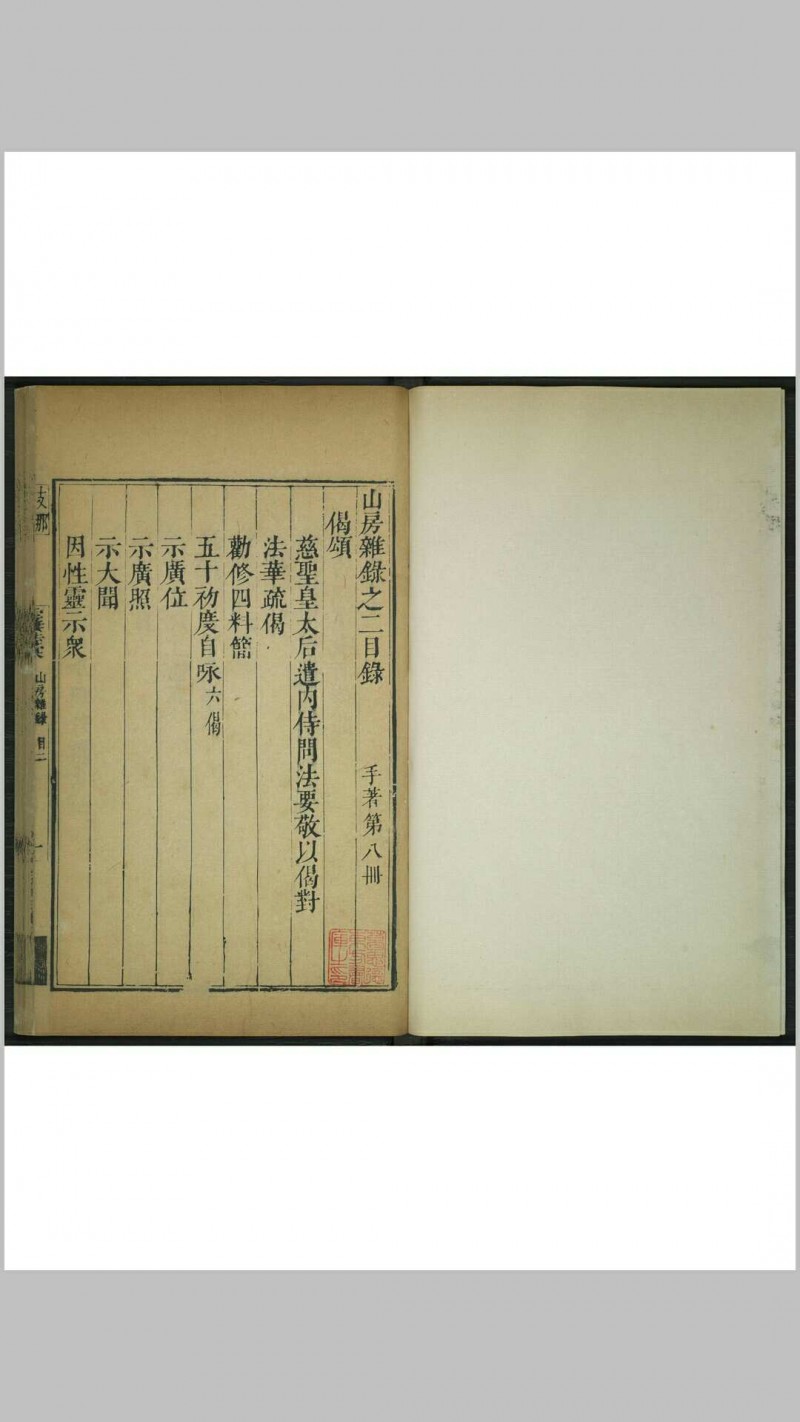 山房雜錄之二目錄 手著第八冊
偈頌
慈聖皇太后遣内侍問法要敬以偈對
法華疏偈
勸修四料簡
五十初度自咏六偈
示廣位
示廣照
示大聞
因性靈示衆
支那
山房雜錄 目二
一